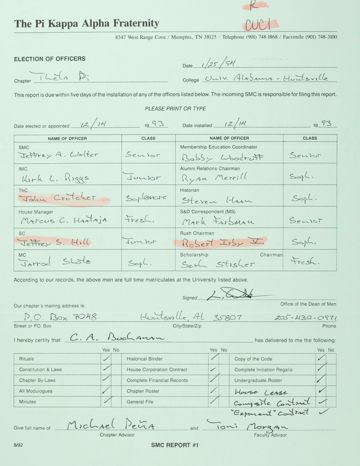 The Pi Kappa Alpha Fraternity
8347 West Range Cove / Memphis, TN 38125 / Telephone (901) 748-1868 / Facsimile (901) 748-3100
ELECTION OF OFFICERS
Date 1/25/94
Chapter Theta Pi College Univ. Alabama - Huntsville
This report is due within five days of the installation of any of the officers listed below. The incoming SMC is responsible for filing this report.
PLEASE PRINT OR TYPE
Date elected or appointed 12/14 1993 Date installed 12/14 1993
NAME OF OFFICER CLASS NAME OF OFFICER CLASS
SMC Membership Education Coordinator
Jeffrey A. Walter Senior Bobby Woodruff Senior
IMC Alumni Relations Chairman
Kirk L. Riggs Junior Ryan Merrill Soph.
ThC Historian
John Crutcher Sophomore Steven Haan Soph.
House Manager S&D Correspondent (MS)
Marcus C. Haataja Fresh. Mark Farbman Senior
SC Rush Chairman
Jeffrey S. Hill Junior Robert Irby V Soph.
MC Scholarship Chairman
Jarrod Shotz Soph. Seth Stisher Fresh.
According to our records, the above men are full time matriculates at the University listed above.
Signed
Our chapter's mailing address is: Office of the Dean of Men
P.O. Box 7048 Huntsville, Al 35807 205-430-0971
Street or P.O. Box City/State/Zip Phone
I hereby certify that C. A. Buchanan has delivered to me the following:
Yes No Yes No Yes No
Rituals ✓ Historical Binder ✓ Copy of the Code ✓
Constitution & Laws ✓ House Corporation Contract ✓ Complete Initiation Regalia ✓
Chapter By-Laws ✓ Complete Financial Records ✓ Undergraduate Roster ✓
All Moduologues ✓ Chapter Roster ✓ House Lease ✓
Minutes ✓ General File ✓ Composite Contract ✓
"Exponent" Contract ✓
Give full name of Michael Peña and Toni Morgan
Chapter Advisor Faculty Advisor
8/92 SMC REPORT #1